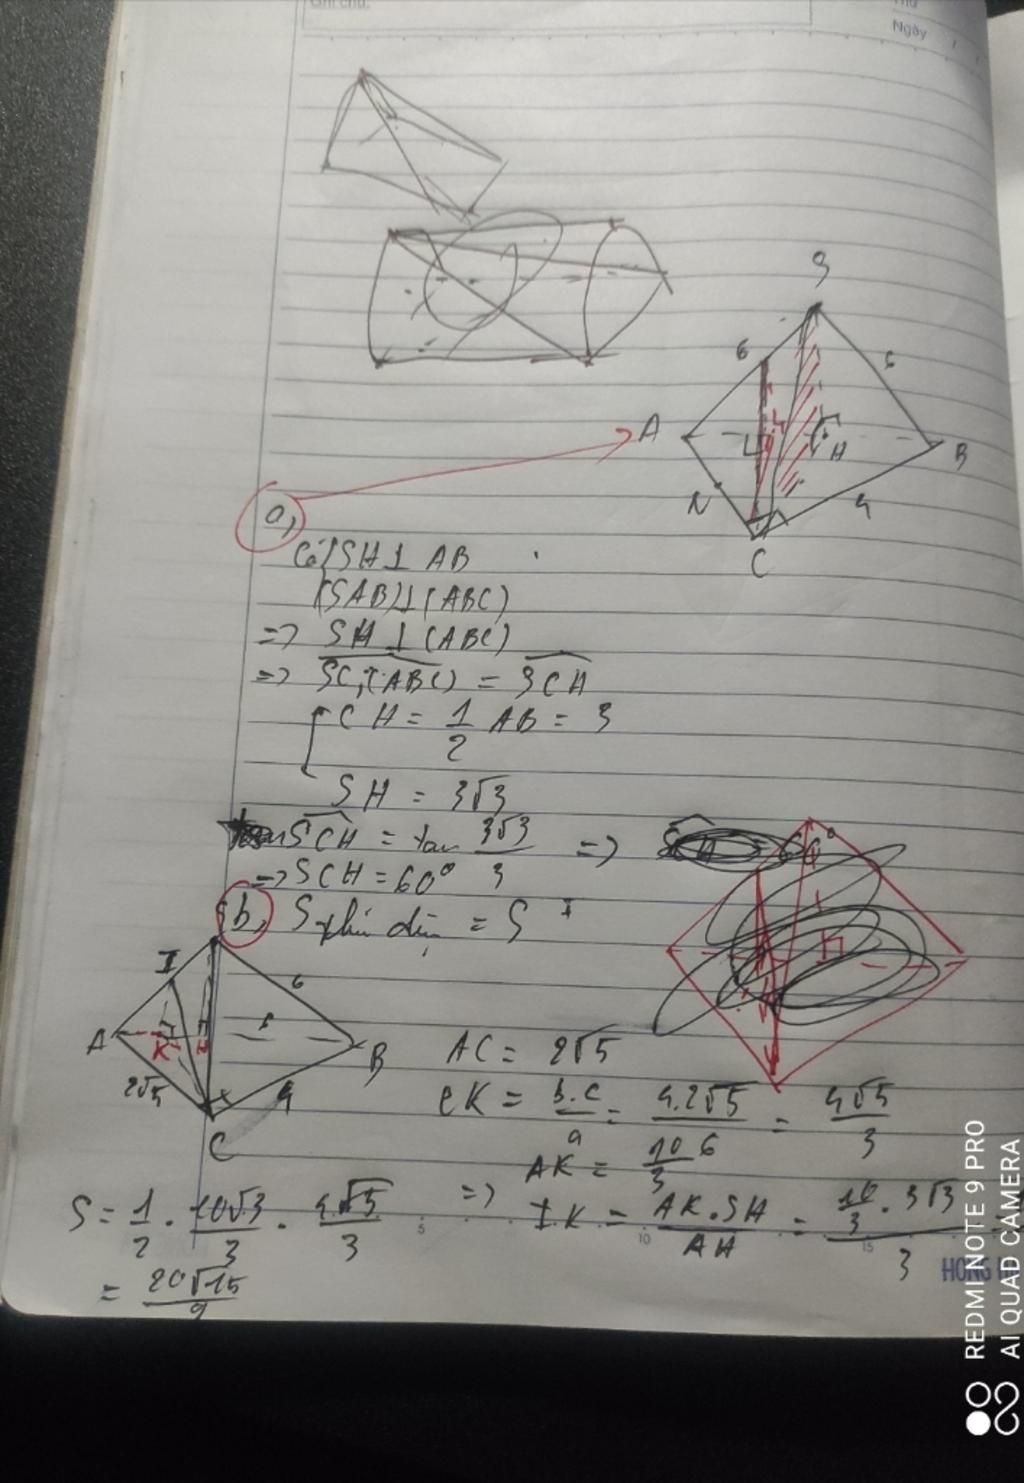 Ghi chú:
Thứ
Ngày / /
S
6
6
A
H
B
N
4
C
a,
Có SH ⊥ AB
(SAB) ⊥ (ABC)
=> SH ⊥ (ABC)
=> SC,(ABC) = SCH
CH = 1/2 AB = 3
SH = 3√3
SCH = tan 3√3/3 =>
=> SCH = 60°
b, S = S
I
6
A
K
H
B
2√5
4
C
AC = 2√5
CK = b.c/a = 4.2√5/6 = 4√5/3
AK = 10/3
=> IK = AK.SH/AH = 10/3 . 3√3/3
S = 1/2 . 10√3/3 . 4√5/3
= 20√15/9
5
10
15
HONG
REDMI NOTE 9 PRO
AI QUAD CAMERA